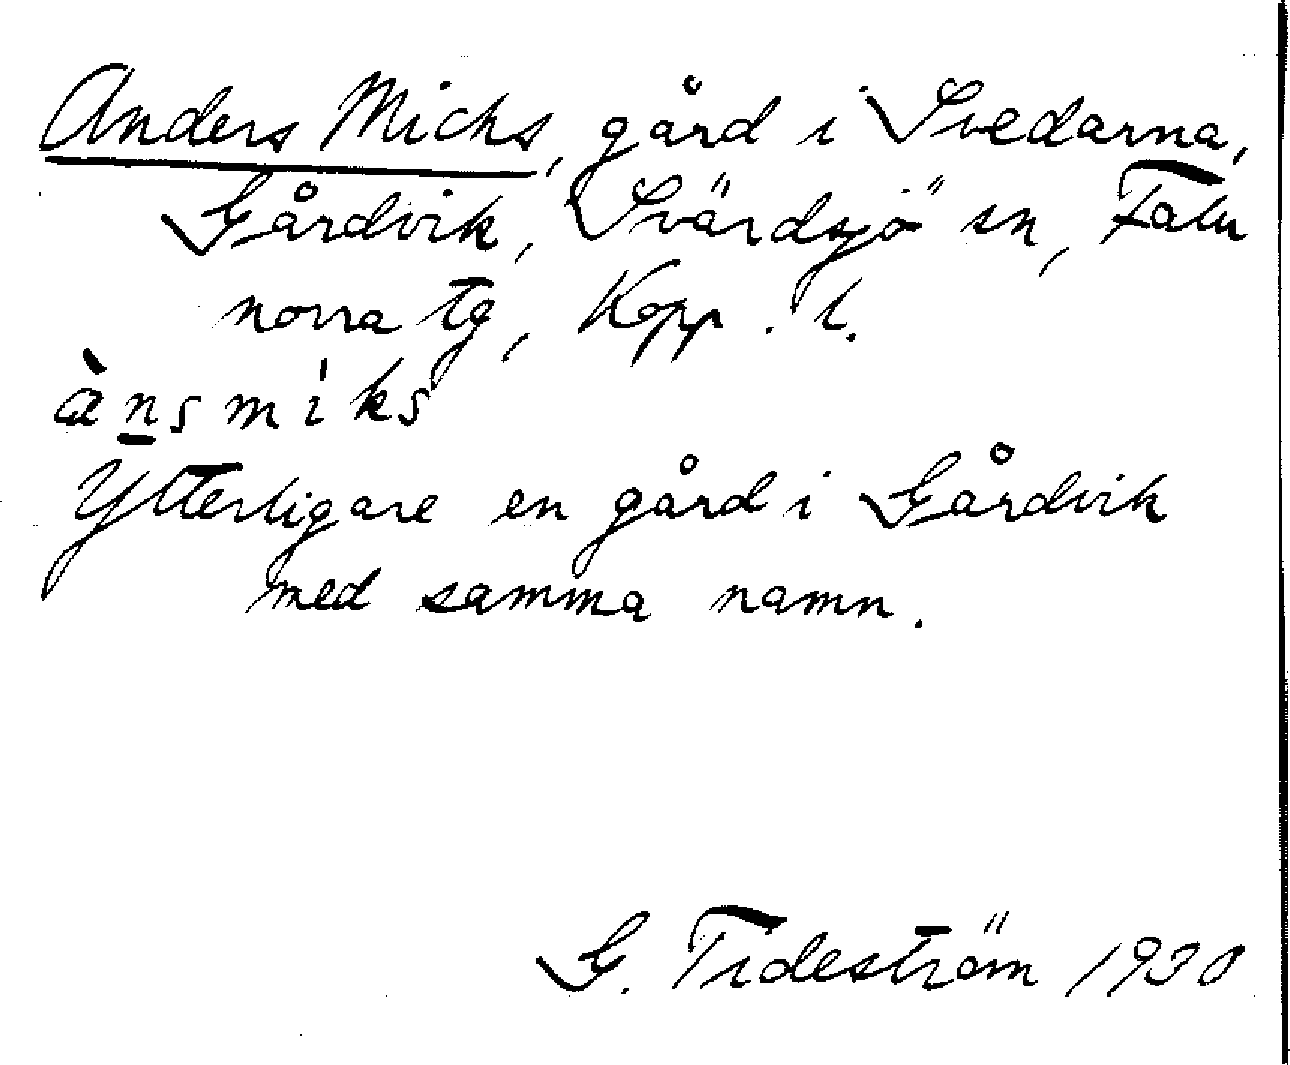 Anders Michs, gård i Svedarna,
Gårdvik, Svärdsjö sn, Falu
norra tg, Kopp. l.
ànsmi̍ks
Ytterligare en gård i Gårdvik
med samma namn.
G. Tideström 1930